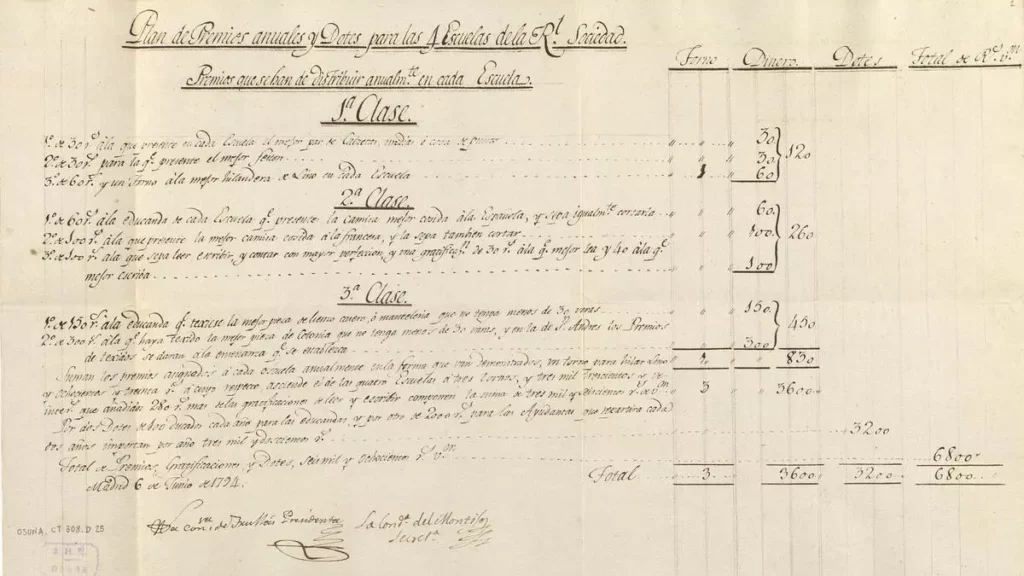 Plan de Premios anuales y Dotes para las 4 Escuelas de la Rl. Sociedad.
Torno Dinero Dotes Total de Rs. vn.
Premios que se han de distribuir anualmte. en cada Escuela.
1.a Clase.
1º. de 30 rs. àla que presente en cada Escuela el mejor par de Calzetas, medias ó cosa de punto 30
2º. de 30 rs. para la qe. presente el mejor 30 120
3º. de 60 rs. y un torno àla mejor hilandera de Lino en cada Escuela 1 60
2.a Clase.
1º. de 60 rs. àla educanda de cada Escuela qe. presente la camisa mejor cosida àla Española, y sepa igualmte. cortarla 60
2º. de 100 rs. àla que presente la mejor camisa cosida àla francesa, y la sepa tambien cortar 100 260
3º. de 100 rs. àla que sepa leer escribir, y contar con mayor perfeccion, y una gratificon. de 30 rs. àla qe. mejor lea y 40 àla qe.
mejor escriba 100
3.a Clase.
1º. de 150 rs. àla educanda qe. texiese la mejor pieza de lienzo casero, ó manteleria que no tenga menos de 30 varas 150
2º. de 300 rs. àla qe. haya texido la mejor pieza de Cotonia que no tenga menos de 30 varas, y en la de Sn. Andres los Premios 450
de texidos se daran àla enseñanza qe. se establezca 300
Suman los premios asignados à cada escuela anualmente en la forma que van demostrados, un torno para hilar Lino 1 830
y ochocientos y treinta rs. à cuyo respecto asciende el de las quatro Escuelas à tres tornos, y tres mil trescientos y ve-
inte rs. que añadidos 280 rs. mas de las gratificaciones de leer y escribir componen la suma de tres mil y seiscientos rs. de vn. 3 3600
Por dos Dotes de 100 ducados cada año para las educandas, y por otro de 2000 rs. para las Ayudantas que repartira cada
dos años importan por año tres mil y doscientos rs. 3200
Total de Premios, Gratificaciones y Dotes, seis mil y ochocientos rs. vn. 6800
Total 3 3600 3200 6800
Madrid 6 de Junio de 1794.
La Conda. de Presidenta
La Conda. del Montijo
Secreta.
OSUNA, CT 508, D 25
A H N
OSUNA